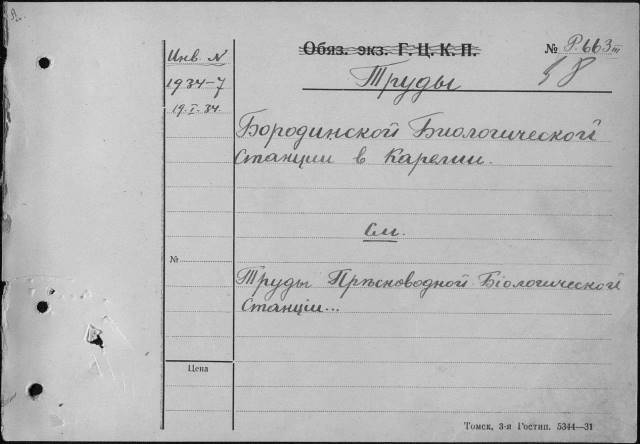 Инв. N
1934-7
19.I.34.
Обяз. экз. Г. Ц. К. П.
№ Р.663 III
58
Труды
Бородинской Биологической
Станции в Карелии.
См.
Труды Прѣсноводной Біологической
Станціи...
№
Цена
Томск, 3-я Гостип. 5344—31